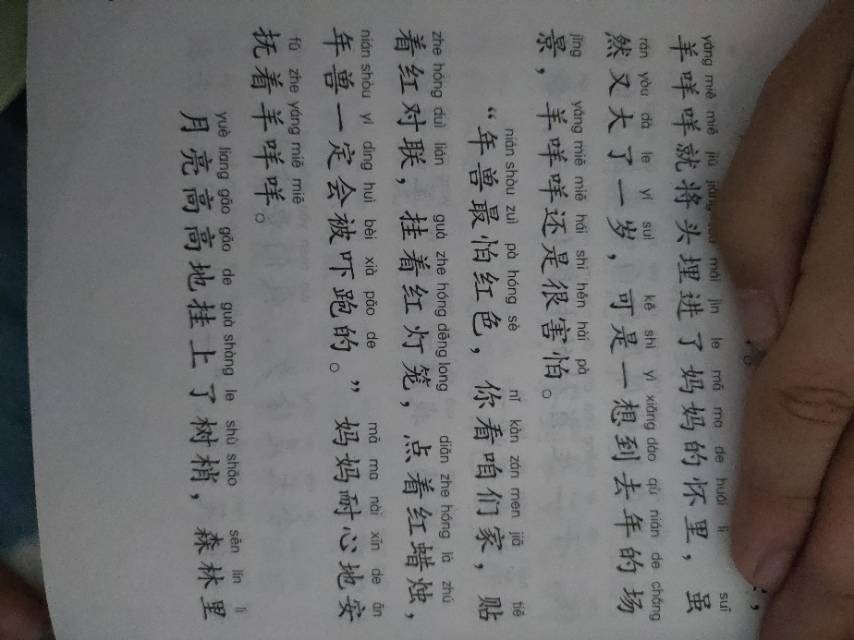 yáng miē miē jiù mái jìn le mā ma de huái lǐ suī
羊咩咩就将头埋进了妈妈的怀里，虽
rán yòu dà le yí suì kě shì yì xiǎng dào qù nián de chǎng
然又大了一岁，可是一想到去年的场
jǐng yáng miē miē hái shi hěn hài pà
景，羊咩咩还是很害怕。
nián shòu zuì pà hóng sè nǐ kàn zán men jiā tiē
“年兽最怕红色，你看咱们家，贴
zhe hóng duì lián guà zhe hóng dēng long diǎn zhe hóng là zhú
着红对联，挂着红灯笼，点着红蜡烛，
nián shòu yí dìng huì bèi xià pǎo de mā ma nài xīn de ān
年兽一定会被吓跑的。”妈妈耐心地安
fǔ zhe yáng miē miē
抚着羊咩咩。
yuè liang gāo gāo de guà shàng le shù shāo sēn lín lǐ
月亮高高地挂上了树梢，森林里